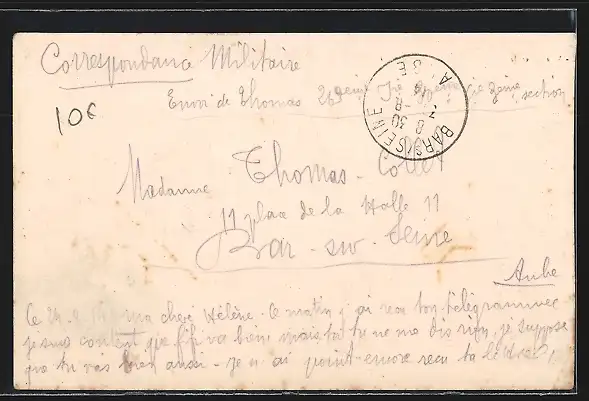 Correspondance Militaire
Envoi de Thomas 269eme section
10€
BAR-S-SEINE
8 30
Madame Thomas-Collet
11 place de la Halle 11
Bar-sur-Seine
Aube
Ce ma chère Hélène. Ce matin j'ai reçu ton télégramme
je suis content que Fifi va bien mais toi tu ne me dis rien, je suppose
que tu vas bien aussi - je n'ai point encore reçu ta